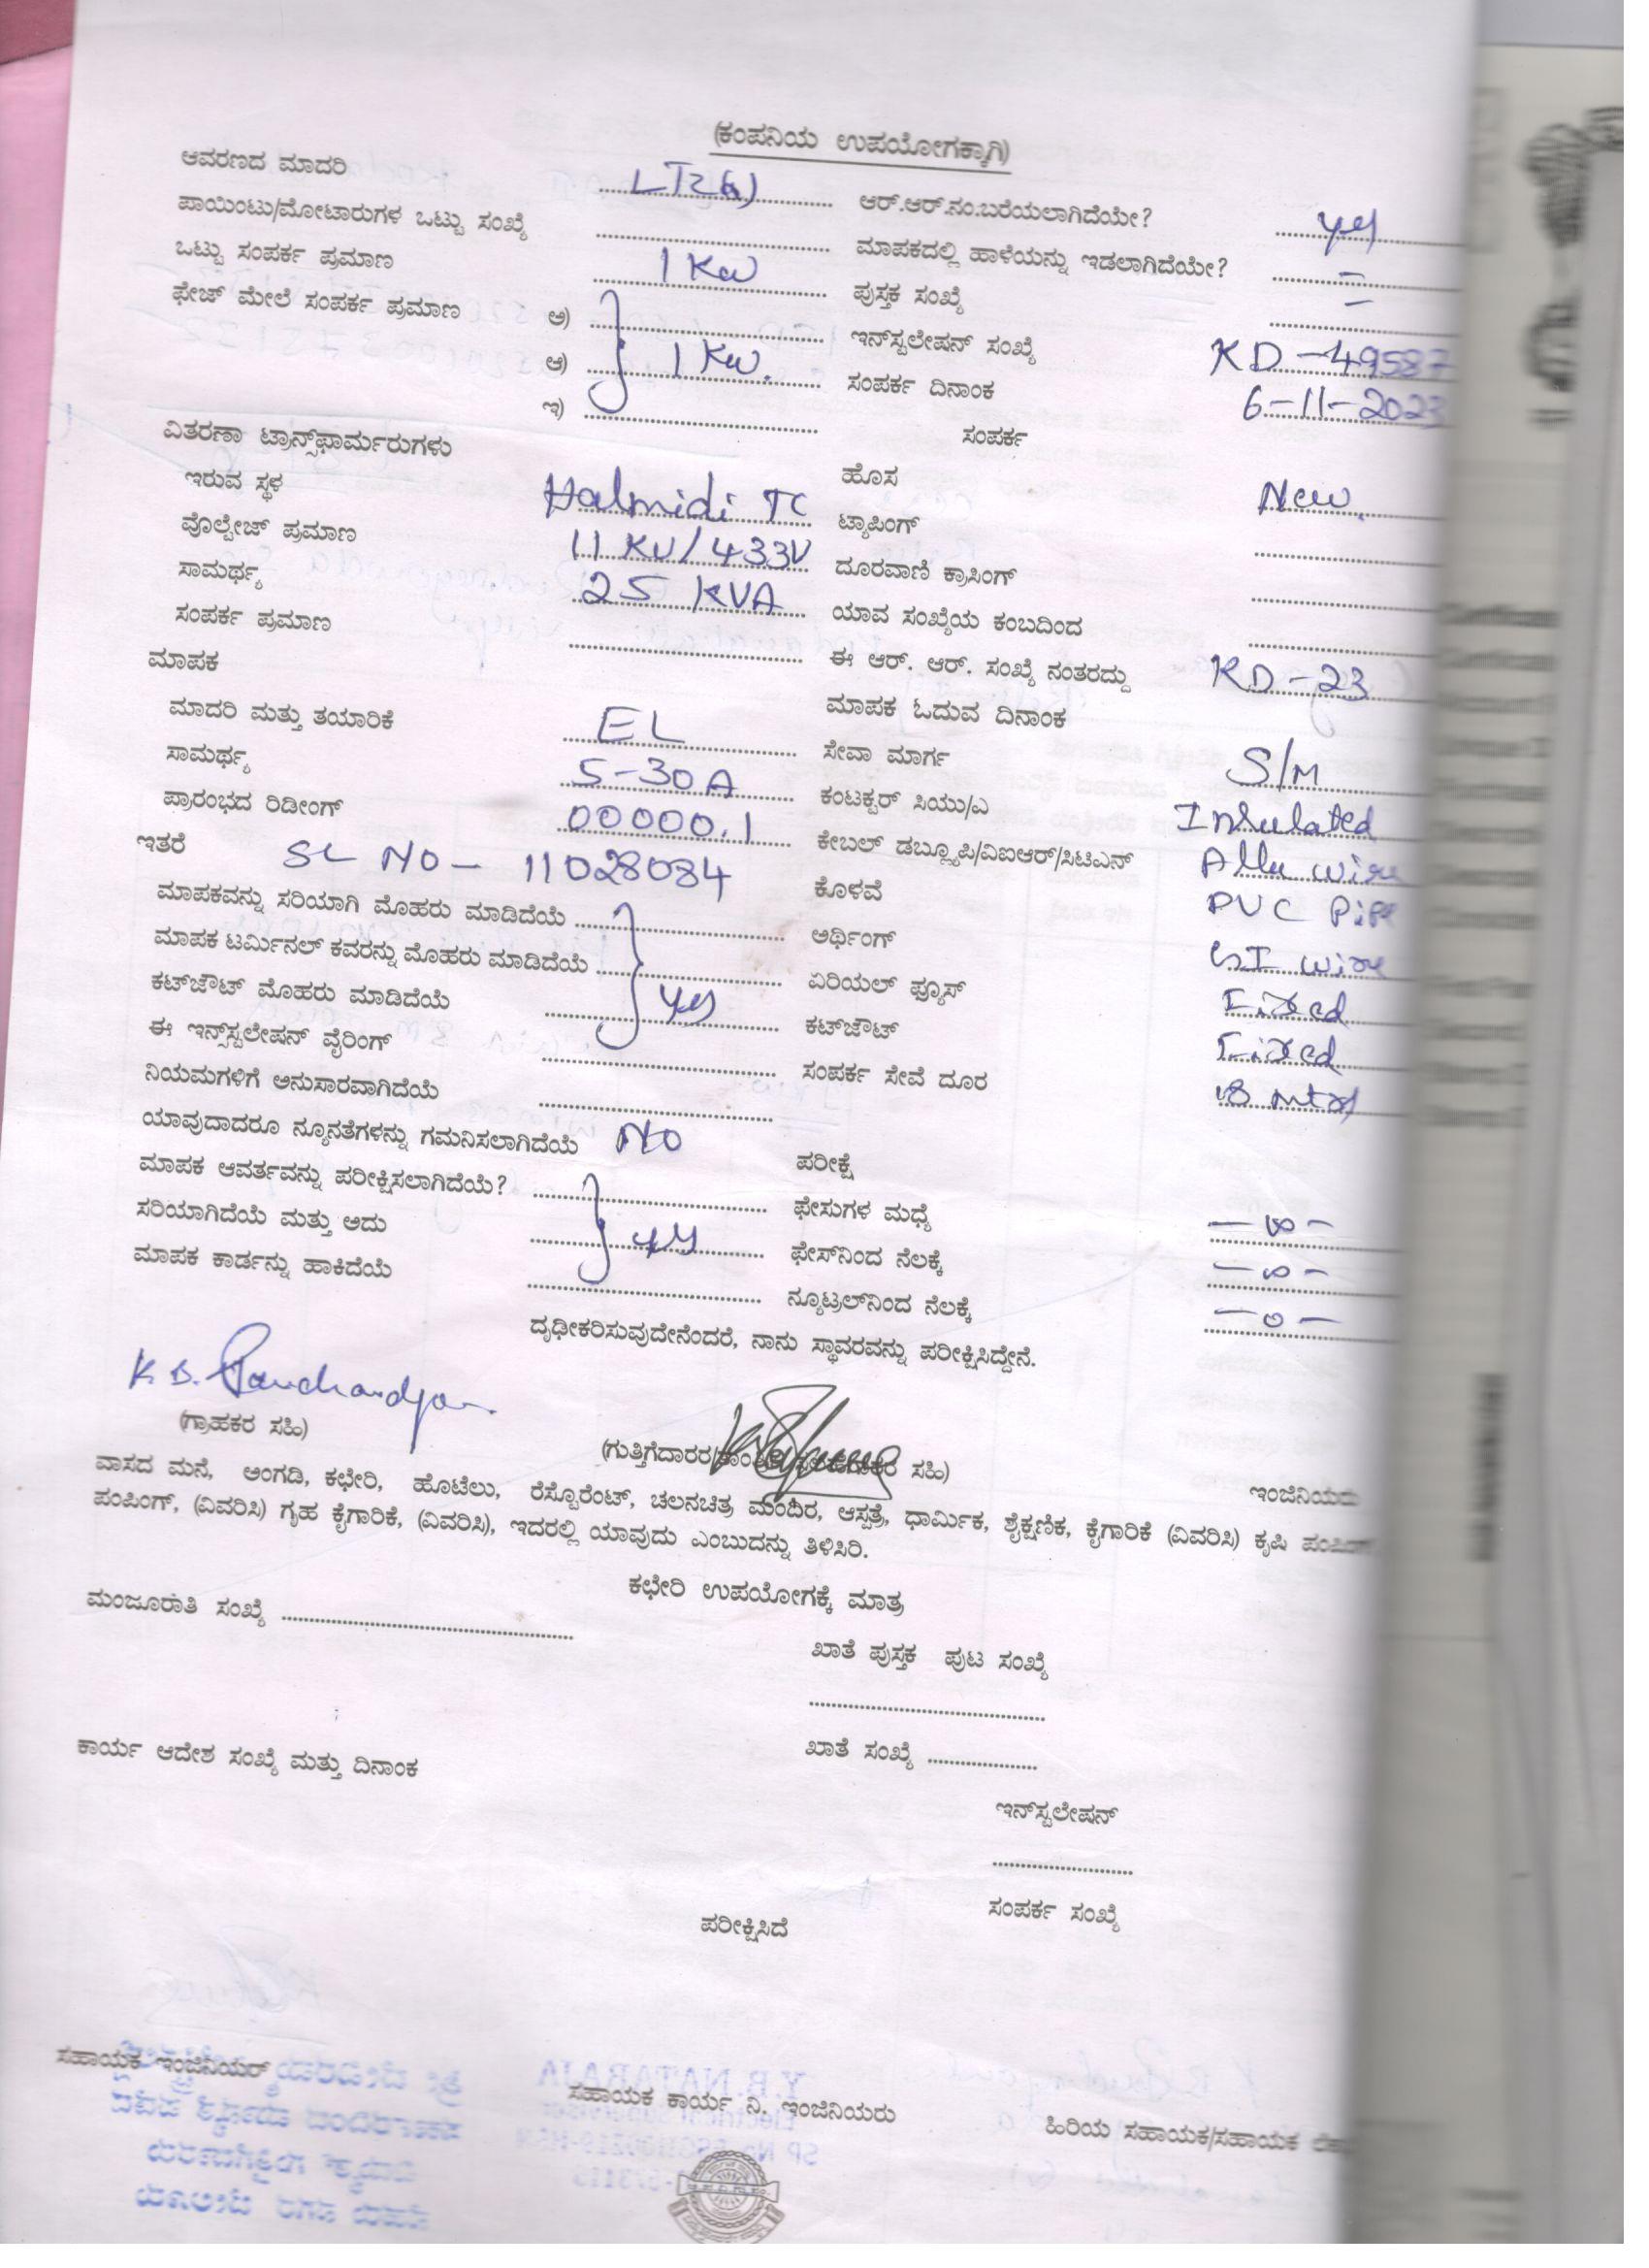 (ಕಂಪನಿಯ ಉಪಯೋಗಕ್ಕಾಗಿ)
ಆವರಣದ ಮಾದರಿ LT2(a) ಆರ್.ಆರ್.ನಂ.ಬರೆಯಲಾಗಿದೆಯೇ? yes
ಪಾಯಿಂಟು/ಮೋಟಾರುಗಳ ಒಟ್ಟು ಸಂಖ್ಯೆ ಮಾಪಕದಲ್ಲಿ ಹಾಳೆಯನ್ನು ಇಡಲಾಗಿದೆಯೇ? –
ಒಟ್ಟು ಸಂಪರ್ಕ ಪ್ರಮಾಣ 1 Kw ಪುಸ್ತಕ ಸಂಖ್ಯೆ –
ಫೇಜ್ ಮೇಲೆ ಸಂಪರ್ಕ ಪ್ರಮಾಣ ಅ) ಇನ್‌ಸ್ಟಲೇಷನ್ ಸಂಖ್ಯೆ KD-49587
ಆ) 1 Kw. ಸಂಪರ್ಕ ದಿನಾಂಕ 6-11-2023
ಇ) ಸಂಪರ್ಕ
ವಿತರಣಾ ಟ್ರಾನ್ಸ್‌ಫಾರ್ಮರುಗಳು ಹೊಸ New.
ಇರುವ ಸ್ಥಳ Halmidi TC ಟ್ಯಾಪಿಂಗ್
ವೊಲ್ಟೇಜ್ ಪ್ರಮಾಣ 11 KV/433V ದೂರವಾಣಿ ಕ್ರಾಸಿಂಗ್
ಸಾಮರ್ಥ್ಯ 25 KVA ಯಾವ ಸಂಖ್ಯೆಯ ಕಂಬದಿಂದ
ಸಂಪರ್ಕ ಪ್ರಮಾಣ ಈ ಆರ್. ಆರ್. ಸಂಖ್ಯೆ ನಂತರದ್ದು KD-23
ಮಾಪಕ ಮಾಪಕ ಓದುವ ದಿನಾಂಕ
ಮಾದರಿ ಮತ್ತು ತಯಾರಿಕೆ EL ಸೇವಾ ಮಾರ್ಗ S/M
ಸಾಮರ್ಥ್ಯ 5-30A ಕಂಟಕ್ಟರ್ ಸಿಯು/ಎ Insulated
ಪ್ರಾರಂಭದ ರಿಡೀಂಗ್ 00000.1 ಕೇಬಲ್ ಡಬ್ಲ್ಯೂಪಿ/ವಿಐಆರ್/ಸಿಟಿಎಸ್ Allu wire
ಇತರೆ SL NO - 11028084 ಕೊಳವೆ PVC Pipe
ಮಾಪಕವನ್ನು ಸರಿಯಾಗಿ ಮೊಹರು ಮಾಡಿದೆಯೆ ಅರ್ಥಿಂಗ್ GI wire
ಮಾಪಕ ಟರ್ಮಿನಲ್ ಕವರನ್ನು ಮೊಹರು ಮಾಡಿದೆಯೆ ಏರಿಯಲ್ ಫ್ಯೂಸ್ Fixed
ಕಟ್‌ಔಟ್ ಮೊಹರು ಮಾಡಿದೆಯೆ yes ಕಟ್‌ಔಟ್ Fixed
ಈ ಇನ್‌ಸ್ಟಲೇಷನ್ ವೈರಿಂಗ್ ಸಂಪರ್ಕ ಸೇವೆ ದೂರ
ನಿಯಮಗಳಿಗೆ ಅನುಸಾರವಾಗಿದೆಯೆ
ಯಾವುದಾದರೂ ನ್ಯೂನತೆಗಳನ್ನು ಗಮನಿಸಲಾಗಿದೆಯೆ NO ಪರೀಕ್ಷೆ
ಮಾಪಕ ಆವರ್ತವನ್ನು ಪರೀಕ್ಷಿಸಲಾಗಿದೆಯೆ? ಫೇಸುಗಳ ಮಧ್ಯೆ – ∞ –
ಸರಿಯಾಗಿದೆಯೆ ಮತ್ತು ಅದು yes ಫೇಸ್‌ನಿಂದ ನೆಲಕ್ಕೆ – ∞ –
ಮಾಪಕ ಕಾರ್ಡನ್ನು ಹಾಕಿದೆಯೆ ನ್ಯೂಟ್ರಲ್‌ನಿಂದ ನೆಲಕ್ಕೆ – 0 –
ದೃಢೀಕರಿಸುವುದೇನೆಂದರೆ, ನಾನು ಸ್ಥಾವರವನ್ನು ಪರೀಕ್ಷಿಸಿದ್ದೇನೆ.
(ಗ್ರಾಹಕರ ಸಹಿ) (ಗುತ್ತಿಗೆದಾರರ ಸಹಿ) ಇಂಜಿನಿಯರು
ವಾಸದ ಮನೆ, ಅಂಗಡಿ, ಕಛೇರಿ, ಹೊಟೆಲು, ರೆಸ್ಟೊರೆಂಟ್, ಚಲನಚಿತ್ರ ಮಂದಿರ, ಆಸ್ಪತ್ರೆ, ಧಾರ್ಮಿಕ, ಶೈಕ್ಷಣಿಕ, ಕೈಗಾರಿಕೆ (ವಿವರಿಸಿ) ಕೃಷಿ
ಪಂಪಿಂಗ್, (ವಿವರಿಸಿ) ಗೃಹ ಕೈಗಾರಿಕೆ, (ವಿವರಿಸಿ), ಇದರಲ್ಲಿ ಯಾವುದು ಎಂಬುದನ್ನು ತಿಳಿಸಿರಿ.
ಕಛೇರಿ ಉಪಯೋಗಕ್ಕೆ ಮಾತ್ರ
ಮಂಜೂರಾತಿ ಸಂಖ್ಯೆ
ಖಾತೆ ಪುಸ್ತಕ ಪುಟ ಸಂಖ್ಯೆ
ಕಾರ್ಯ ಆದೇಶ ಸಂಖ್ಯೆ ಮತ್ತು ದಿನಾಂಕ ಖಾತೆ ಸಂಖ್ಯೆ
ಇನ್‌ಸ್ಟಲೇಷನ್
ಸಂಪರ್ಕ ಸಂಖ್ಯೆ
ಪರೀಕ್ಷಿಸಿದೆ
ಸಹಾಯಕ ಇಂಜಿನಿಯರ್ ಸಹಾಯಕ ಕಾರ್ಯ ನಿ. ಇಂಜಿನಿಯರು ಹಿರಿಯ ಸಹಾಯಕ/ಸಹಾಯಕ